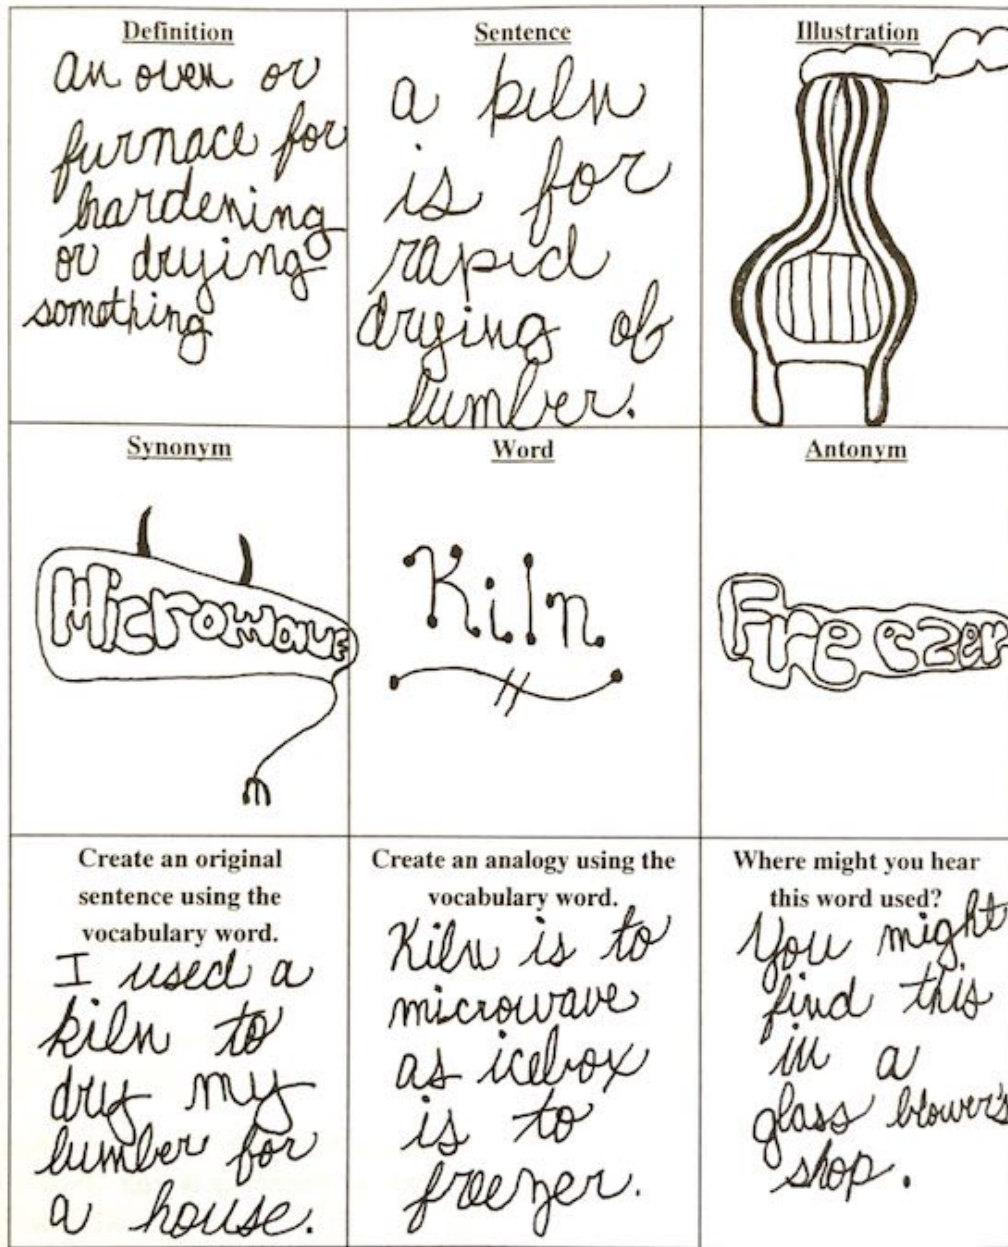 Definition
an oven or
furnace for
hardening
or drying
something
Sentence
a kiln
is for
rapid
drying of
lumber.
Illustration
Synonym
Microwave
Word
Kiln
Antonym
Freezer
Create an original
sentence using the
vocabulary word.
I used a
kiln to
dry my
lumber for
a house.
Create an analogy using the
vocabulary word.
Kiln is to
microwave
as icebox
is to
freezer.
Where might you hear
this word used?
You might
find this
in a
glass blower's
shop.